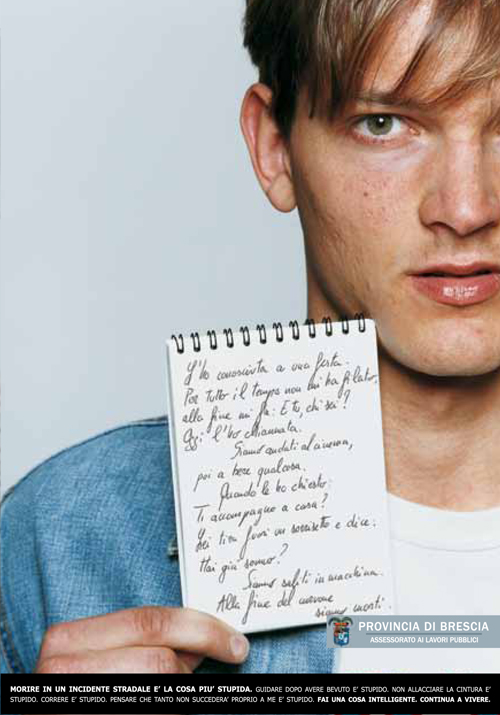 L'ho conosciuta a una festa.
Per tutto il tempo non mi ha filato,
alla fine mi fa: E tu, chi sei?
Oggi l'ho chiamata.
Siamo andati al cinema,
poi a bere qualcosa.
Quando le ho chiesto:
Ti accompagno a casa?
Lei tira fuori un sorrisetto e dice:
Hai già sonno?
Siamo saliti in macchina.
Alla fine del
siamo morti.
PROVINCIA DI BRESCIA
ASSESSORATO AI LAVORI PUBBLICI
MORIRE IN UN INCIDENTE STRADALE E' LA COSA PIU' STUPIDA. GUIDARE DOPO AVERE BEVUTO E' STUPIDO. NON ALLACCIARE LA CINTURA E'
STUPIDO. CORRERE E' STUPIDO. PENSARE CHE TANTO NON SUCCEDERA' PROPRIO A ME E' STUPIDO. FAI UNA COSA INTELLIGENTE. CONTINUA A VIVERE.